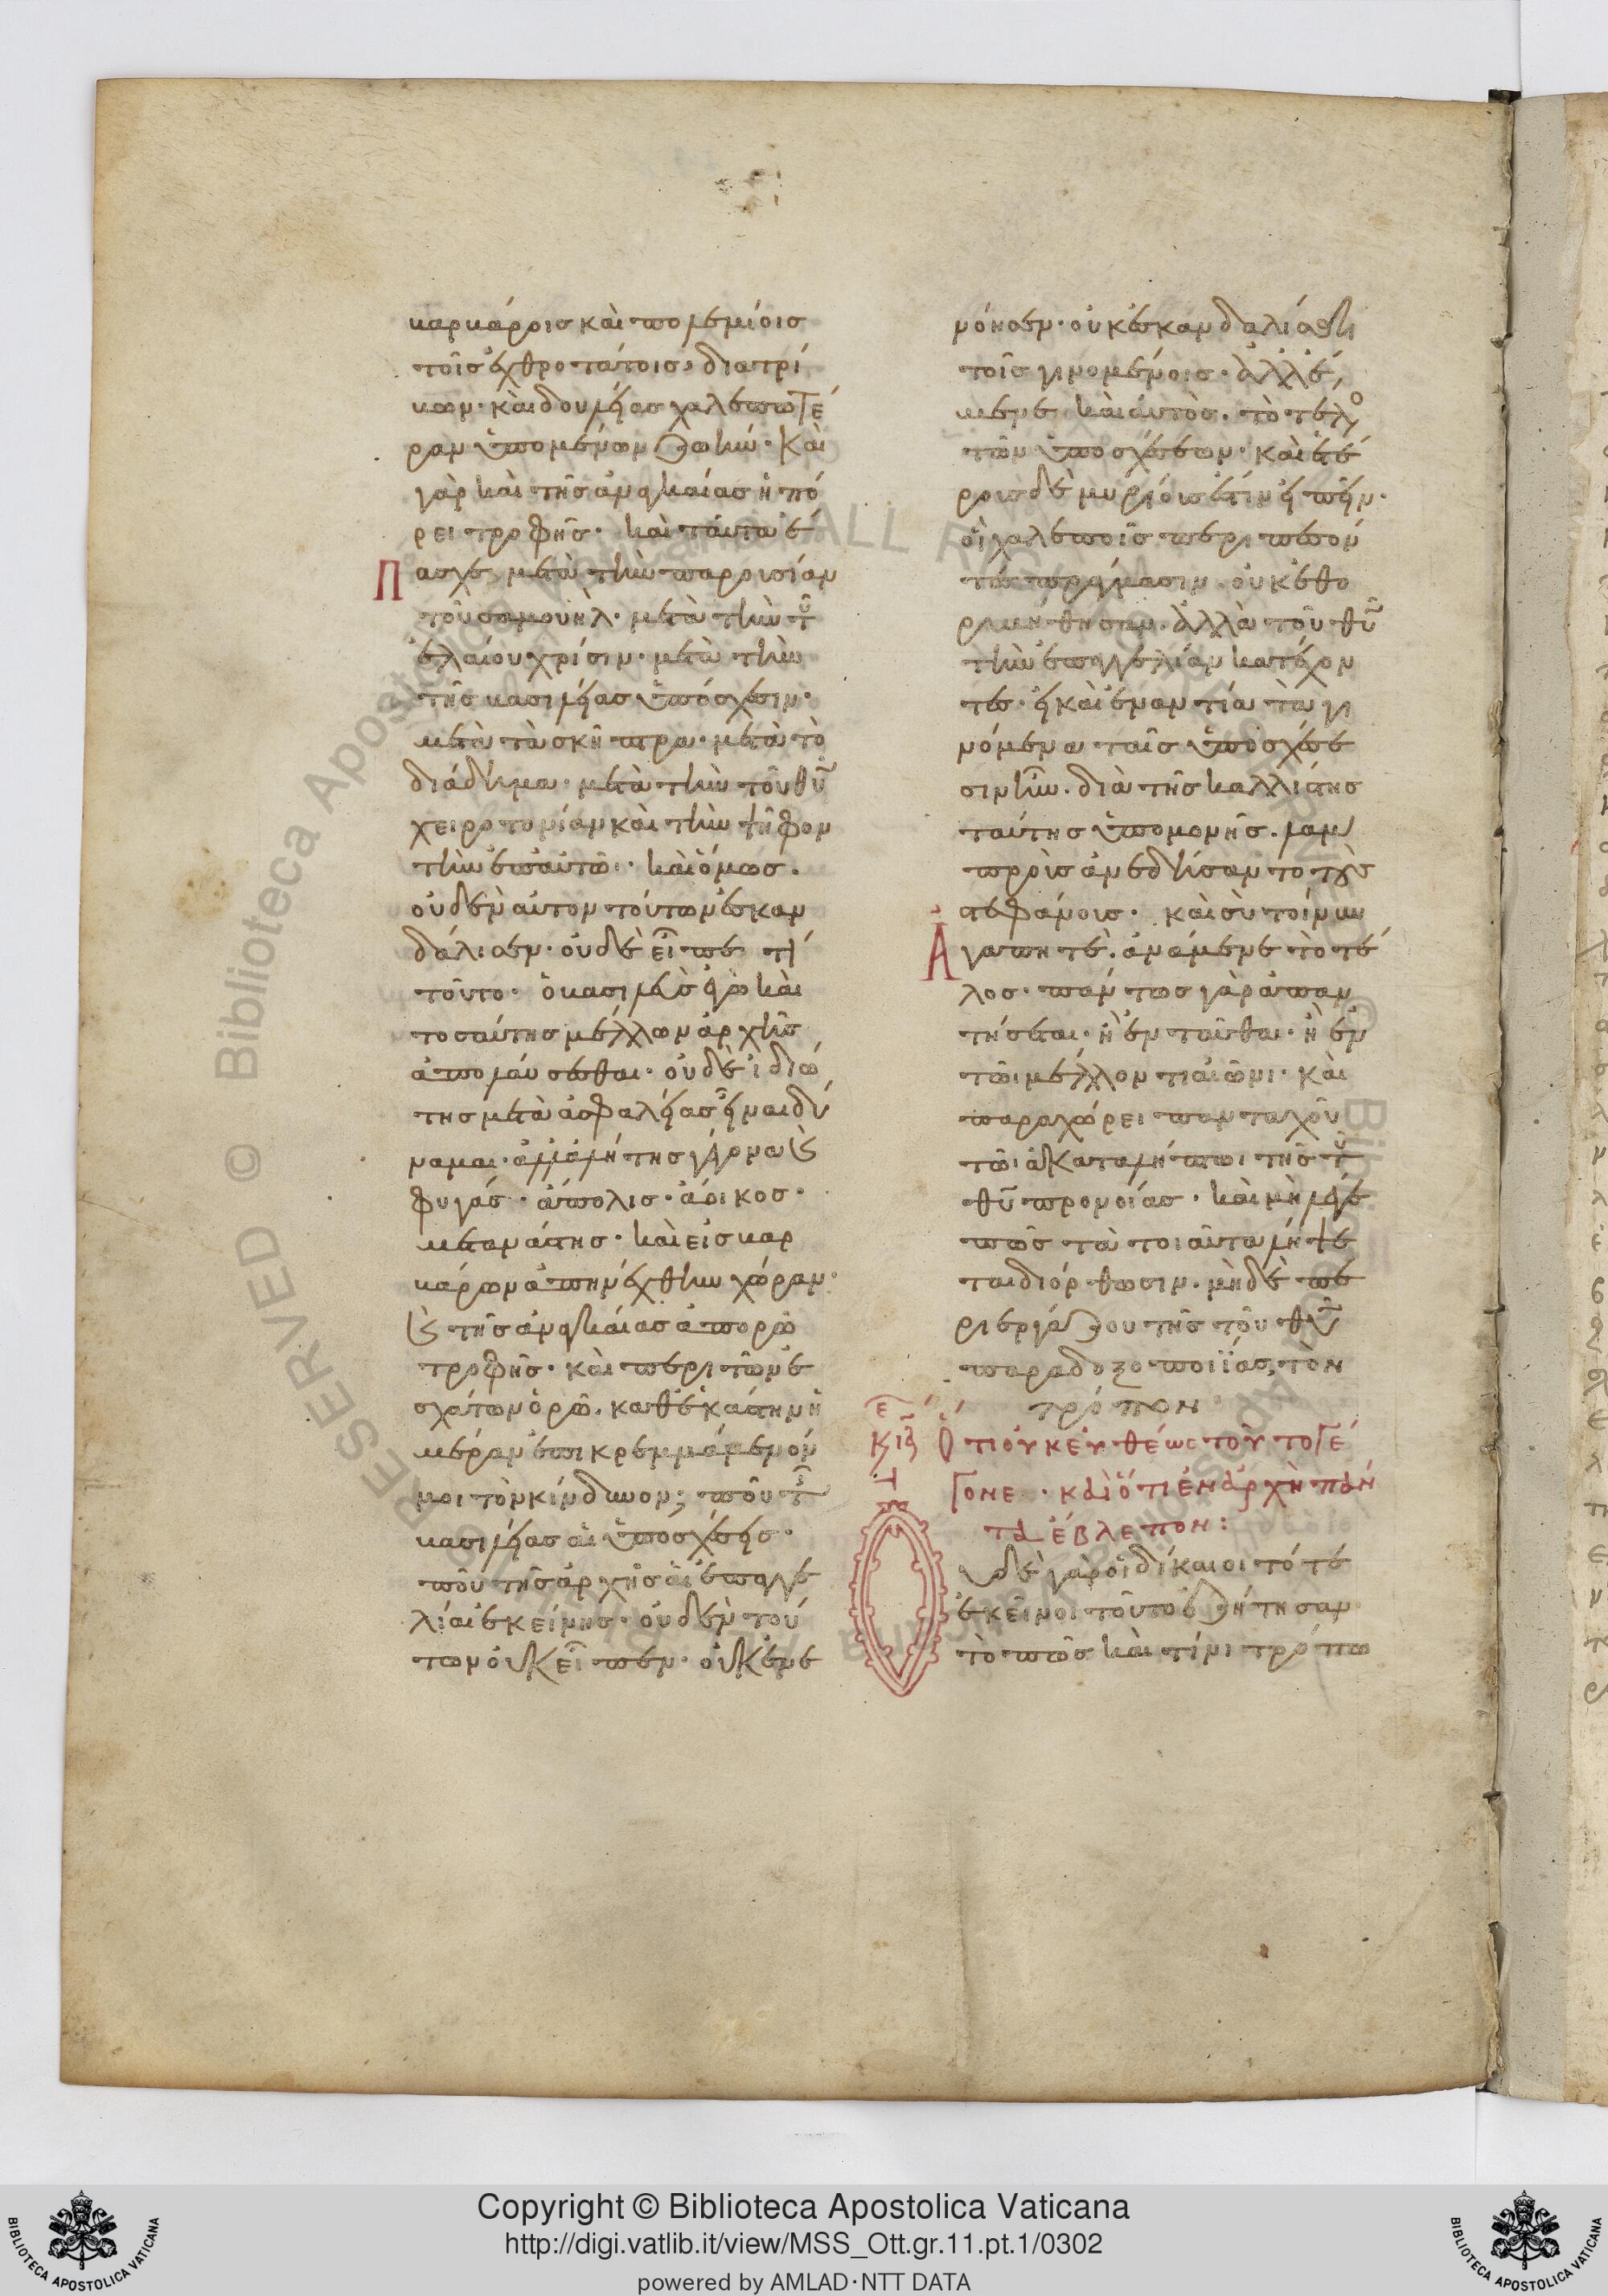 βαρβάροις καὶ πολεμίοις
τοῖς ἐχθροτάτοις διατρί
βων· καὶ δουλείας χαλεπωτέ
ραν ὑπομένων ζωήν· καὶ
γὰρ καὶ τῆς ἀναγκαίας ἠπό
ρει τροφῆς· καὶ ταῦτα ἔ
Πασχε μετὰ τὴν παρρησίαν
τοῦ σαμουήλ· μετὰ τὴν τοῦ
ἐλαίου χρίσιν· μετὰ τὴν
τῆς βασιλείας ὑπόσχεσιν·
μετὰ τὰ σκῆπτρα· μετὰ τὸ
διάδημα· μετὰ τὴν τοῦ θῦ
χειροτονίαν καὶ τὴν ψῆφον
τὴν ἐπ' αὐτῶ· καὶ ὅμως.
οὐδὲν αὐτὸν τούτων ἐσκαν
δάλισεν· οὐδὲ εἶπε τί
τοῦτο· ὁ βασιλεὺς ἐγὼ καὶ
τοσαύτης μέλλων ἀρχῆς
ἀπολαύσεσθαι· οὐδὲ ἰδιώ
της μετὰ ἀσφαλείας εἶναι δύ
ναμαι· ἀλλ' ἀλήτης γέγονα καὶ
φυγάς· ἄπολις· ἄοικος·
μετανάστης· καὶ εἰς βαρ
βάρων ἀπηνέχθην χώραν·
καὶ τῆς ἀναγκαίας ἀπορῶ
τροφῆς· καὶ περὶ τῶν ἐ
σχάτων ὁρῶ. καθ' ἑκάστην ἡ
μέραν ἐπικρεμμάμενόν
μοι τὸν κίνδυνον; ποῦ τῆς
βασιλείας αἱ ὑποσχέσεις·
ποῦ τῆς ἀρχῆς αἱ ἐπαγγε
λίαι ἐκείνης· οὐδὲν τού
των οὐκ εἶπεν· οὐκ ἐνε
νόησεν· οὐκ ἐσκανδαλίσθη
τοῖς γινομένοις· ἀλλ' ἔ
μενε καὶ αὐτὸς. τὸ τέλος
τῶν ὑποσχέσεων· καὶ ἑτέ
ρους δὲ μυρίους ἔστιν εἰπεῖν·
οἳ χαλεποῖς περιπεσόν
τες πράγμασιν. οὐκ ἐθο
ρυβήθησαν. ἀλλὰ τοῦ θῦ
τὴν ἐπαγγελίαν κατέχον
τες· εἰ καὶ ἐναντία τὰ γι
νόμενα ταῖς ὑποσχέσε
σιν ἦν. διὰ τῆς καλλίστης
ταύτης ὑπομονῆς. λαμ
προὺς ἀνεδήσαντο τοὺς
στεφάνους· καὶ σὺ τοίνυν
Ἀγαπητὲ. ἀνάμενε τὸ τέ
λος· πάντως γὰρ ἀπαν
τήσεται· ἢ ἐνταῦθα· ἢ ἐν
τῶι μέλλοντι αἰῶνι· καὶ
παραχώρει πανταχοῦ
τῶι ἀκαταλήπτωι τῆς τοῦ
θῦ προνοίας· καὶ μὴ λέγε
πῶς τὰ τοιαῦτα λήψε
ται διόρθωσιν. μηδὲ πε
ριεργάζου τῆς τοῦ θῦ
παραδοξοποιΐας τὸν
τρόπον·
Ὅτι οὐκ εὐθέως τοῦτο γέ
γονε· καὶ ὅτι ἐν ἀρχῆ πάν
τα ἔβλεπον:
Οὐδὲ γὰρ οἱ δίκαιοι τότε
ἐκεῖνοι τοῦτο ἐζήτησαν
τὸ πῶς καὶ τίνι τρόπω
Copyright © Biblioteca Apostolica Vaticana
http://digi.vatlib.it/view/MSS_Ott.gr.11.pt.1/0302
powered by AMLAD·NTT DATA
BIBLIOTECA APOSTOLICA VATICANA
BIBLIOTECA APOSTOLICA VATICANA